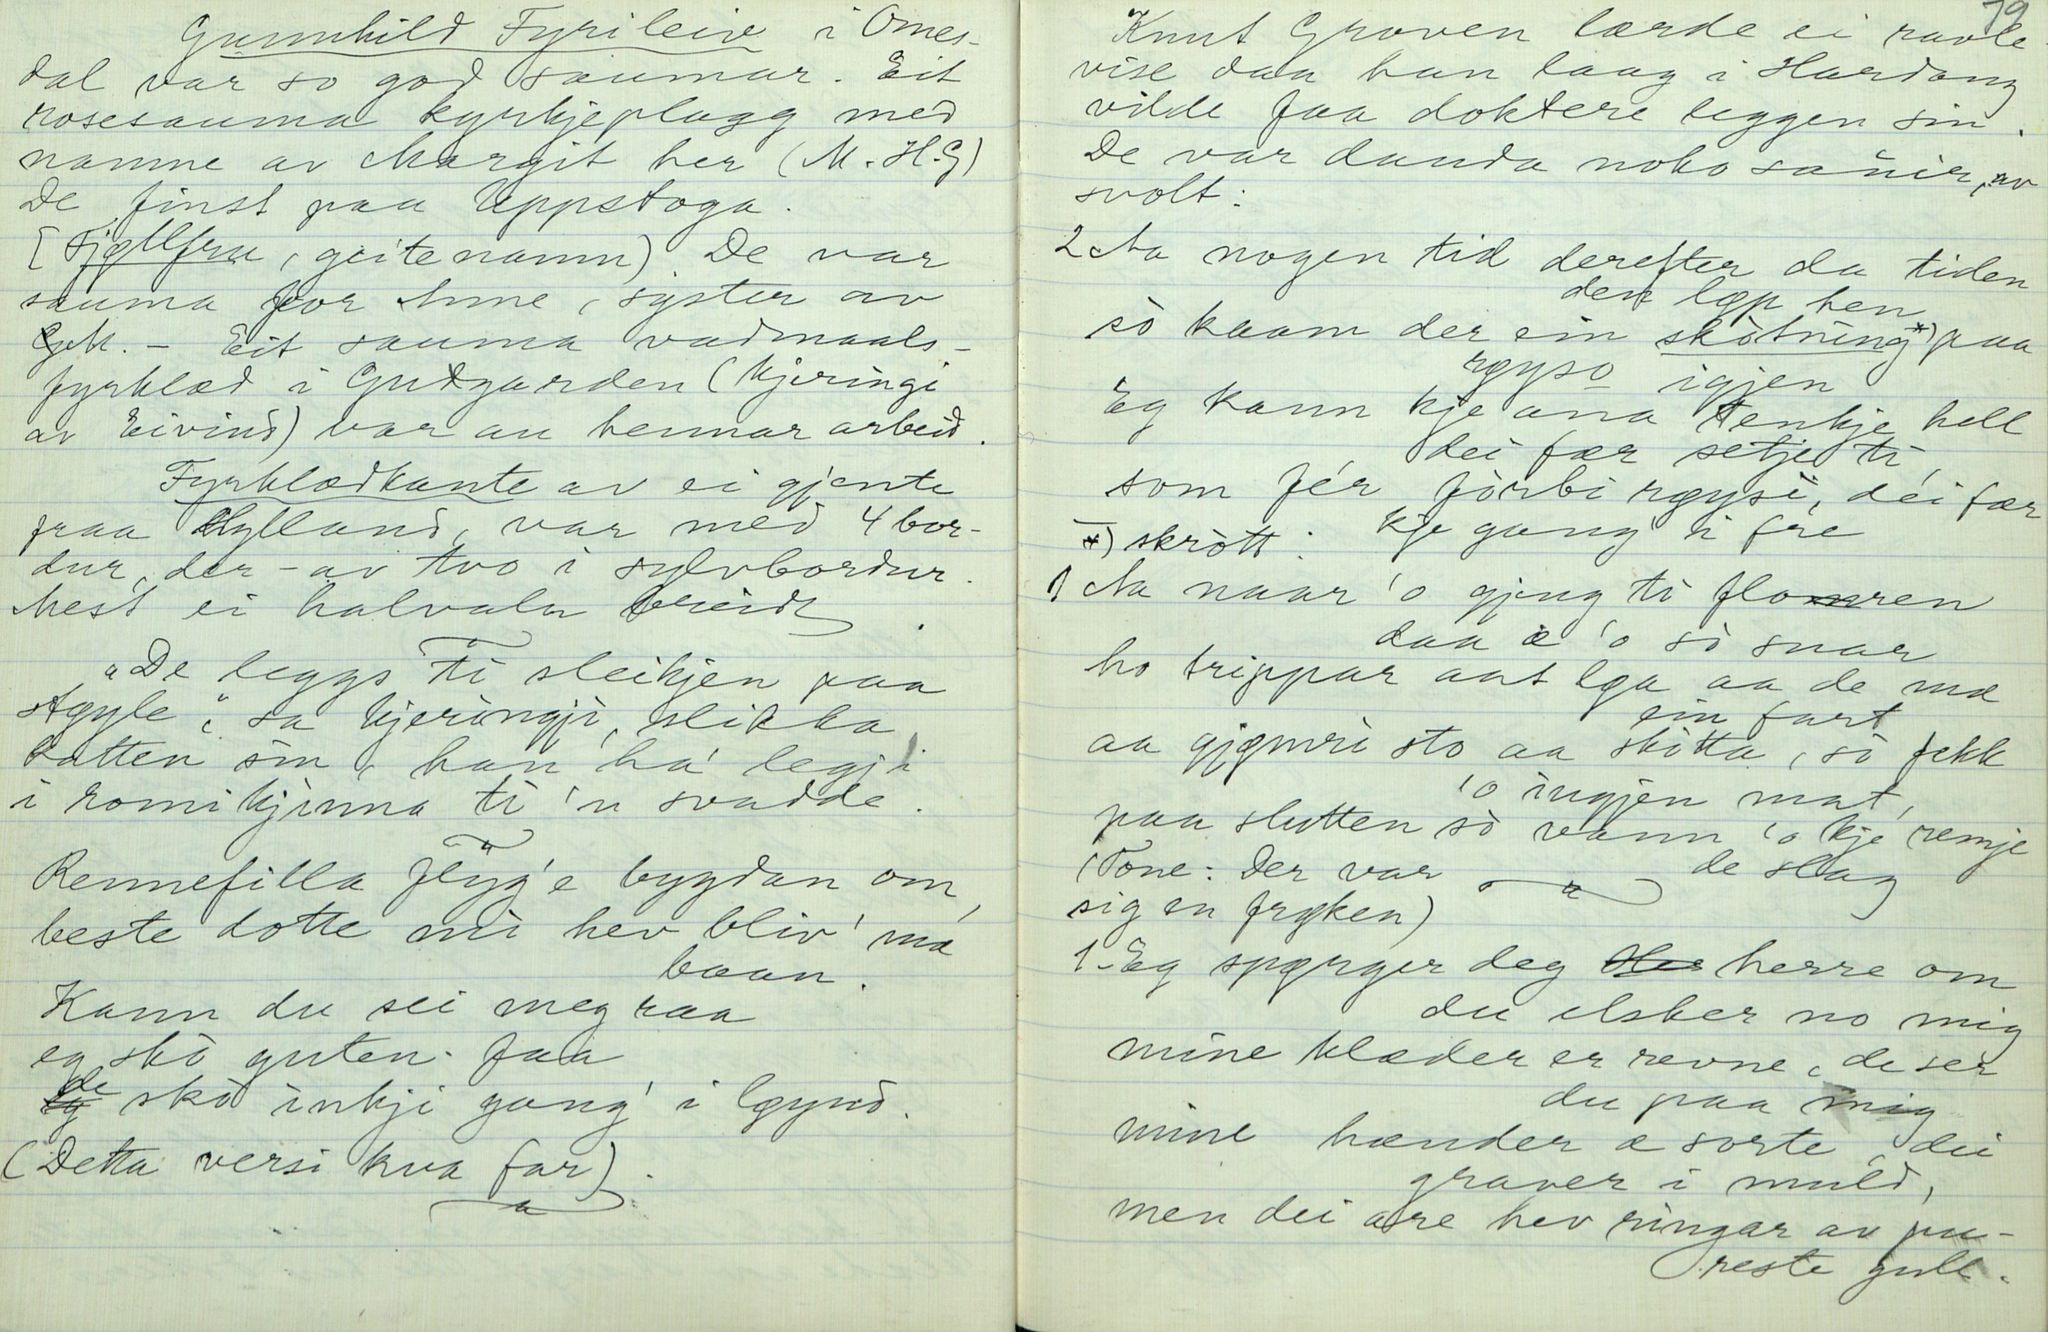 Gunnhild Fyrileiv i Omes-
dal var so god saumar. Eit
rosesauma kyrkjeplagg med
namne av Margit her (M. H. G)
De finst paa Uppstoga.
[Fjøllfru, geitenamn) De var
sauma for Anne, syster av
GM. – Eit sauma vadmaals-
fyrklæd i Gudgarden (kjeringi
av Eivind) var au hennar arbeid.
Fyrklædkante av ei gjente
fraa Hylland, var med 4 bor-
dur, der-av tvo i sylvbordur.
Mest ei halvaln breidt.
"De leggs ti sleikjen paa
Agyle", sa kjeringji, slikka
katten sin, han ha' legji
i romikjinna ti 'n svadde.
Rennefilla flyg'e bygdan om,
beste dotte mi hev bliv' mæ
baan.
Kann du sei meg raa
eg skò guten faa
de skò inkji gang' i løynd.
(Detta versi kva far).
79
Knut Groven lærde ei ravle-
vise daa han laag i Hardang
vilde faa doktere leggen sin.
De var danda noko sañir, av
svolt:
2 Aa nogen tid derefter da tiden
den løp hen
sò kaam der ein skòtning*) paa
røyso igjen
Eg kann kje ana tenkje hell
dei fær setje ti,
som fér fòrbi røysi, déi fær
kje gang' i fre
*) skròtt:
1 Aa naar 'o gjeng ti floren
daa æ 'o sò snar
ho trippar aat løa aa de mæ
ein fart
aa gjønni sto aa skitta, sò fekk
'o ingjen mat,
paa slutten sò vann 'o kje remje
de slag
(Tone: Der var
sig en frøken)
1. Eg spørger deg herre om
du elsker no mig
mine klæder er revne, de sér
du paa mig
mine hænder æ sorte, dei
graver i muld,
men dei are hev ringar av pu-
reste gull.